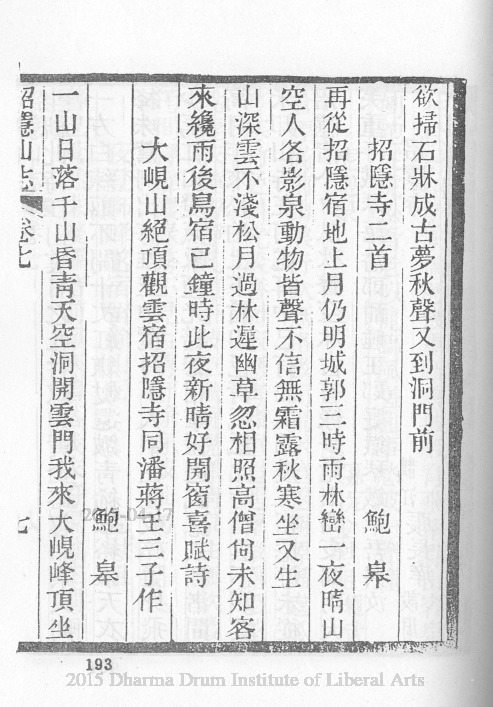 欲掃石牀成古夢秋聲又到洞門前
招隱寺二首 鮑臯
再從招隱宿地上月仍明城郭三時雨林巒一夜晴山
空人各影泉動物皆聲不信無霜露秋寒坐又生
山深雲不淺松月過林遲幽草忽相照高僧尙未知客
來纔雨後鳥宿已鐘時此夜新晴好開窗喜賦詩
大峴山絕頂觀雲宿招隱寺同潘蔣王三子作
鮑臯
一山日落千山昏靑天空洞開雲門我來大峴峰頂坐
招隱山志 卷七 七
193
2015 Dharma Drum Institute of Liberal Arts